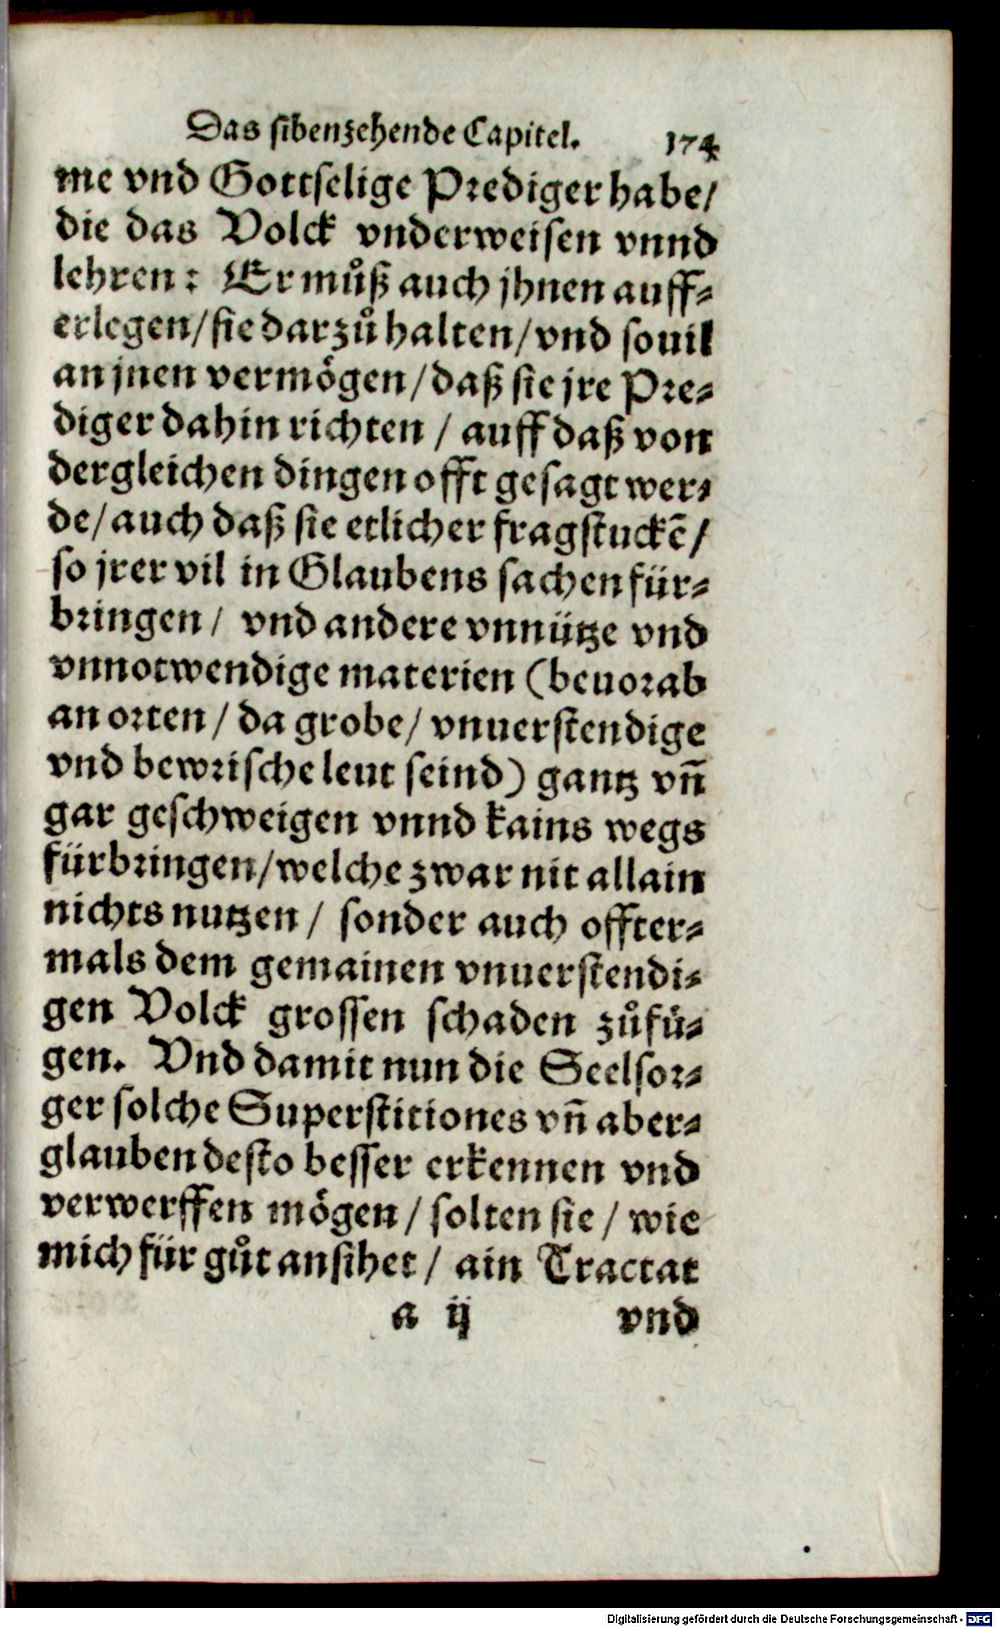 Das sibenzehende Capitel. 174
me vnd Gottselige Prediger habe/
die das Volck vnderweisen vnnd
lehren: Er můß auch jhnen auff-
erlegen/sie darzů halten/vnd souil
an jnen vermögen/daß sie jre Pre-
diger dahin richten / auff daß von
dergleichen dingen offt gesagt wer-
de/auch daß sie etlicher fragstuckē/
so jrer vil in Glaubens sachen für-
bringen/ vnd andere vnnütze vnd
vnnotwendige materien (beuorab
an orten/ da grobe/ vnuerstendige
vnd bewrische leut seind) gantz vñ
gar geschweigen vnnd kains wegs
fürbringen/welche zwar nit allain
nichts nutzen/ sonder auch offter-
mals dem gemainen vnuerstendi-
gen Volck grossen schaden zůfü-
gen. Vnd damit nun die Seelsor-
ger solche Superstitiones vñ aber-
glauben desto besser erkennen vnd
verwerffen mögen/ solten sie/ wie
mich für gůt ansihet/ ain Tractat
a ij vnd
Digitalisierung gefördert durch die Deutsche Forschungsgemeinschaft - DFG